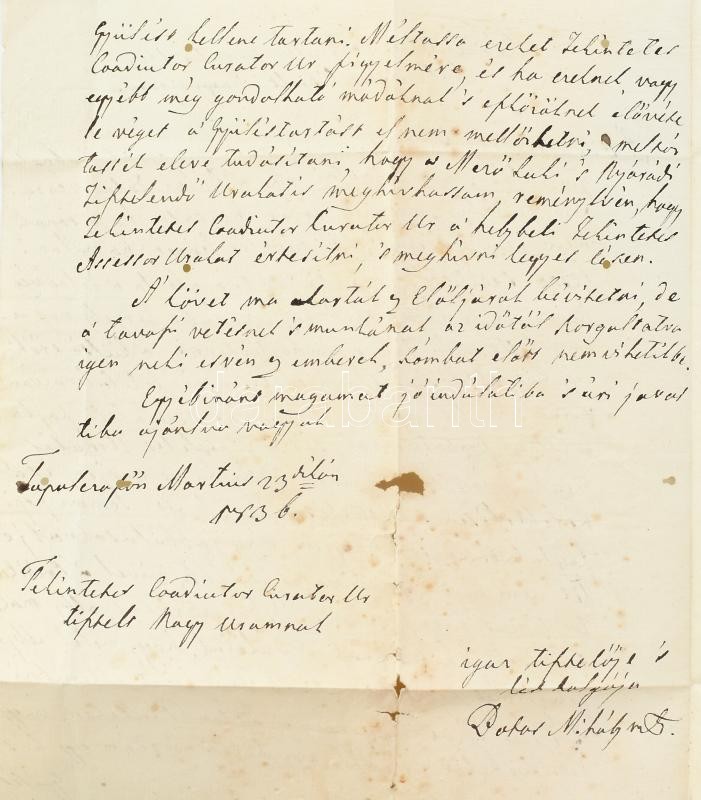 Gyülést kellene tartani. Méltassa ezeket Tekintetes
Coadiutor Curator Ur figyelmére, és ha ezeknek vagy
egyébb még gondolható módoknak 's eszközöknek
le véget a Gyüléstartást el nem mellőzhetni,
tassék eleve tudósítani hogy a Mező Laki 's Nyárádi
Tisztelendő Urakatis meghívhassam, reménylvén, hogy
Tekintetes Coadiutor Curator Ur a helybeli Tekintetes
Assessor Urakat értesítni, 's meghívni kegyes lészen.
A követ ma akarták Elöljárók bévitetni, de
a tavaszi vetésnek 's munkának az időtől
igen neki esvén az emberek, Szombat előtt nem vihetik be.
Egyébiránt magamat jó indúlatiba 's úri javas
tiba ajánlva vagyok
Martius 23dikán
1836.
Tekintetes Coadiutor Curator Ur
tisztelt Nagy Uramnak
igaz tisztelője 's
Mihály
darabanth